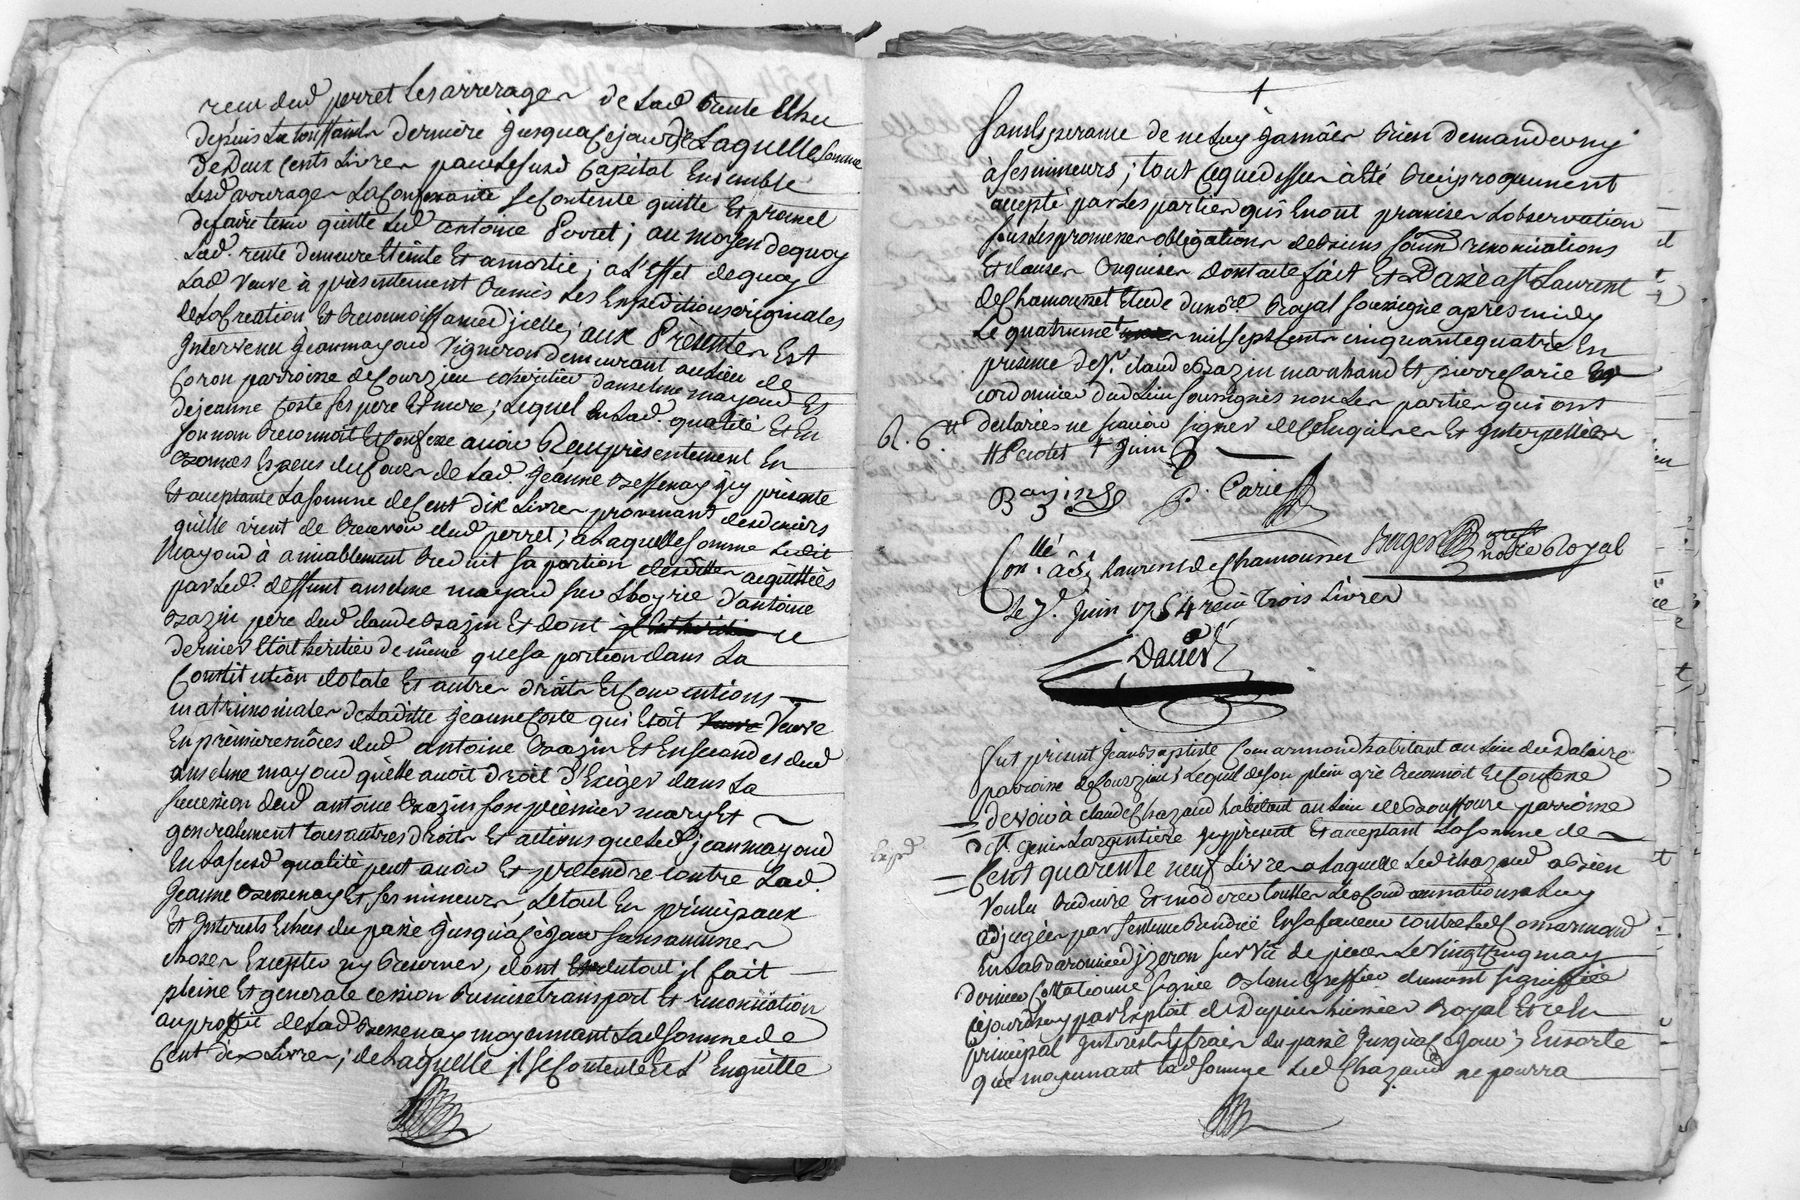 receu dud perret Les arrerages de Lad Rente Echu
depuis La toussaint derniere Jusqua Ce jour de Laquelle somme
de Deux Cents Livres pour Le susd Capital Ensemble
Lesd arrerages La Confessante se Contente quitte Et promet
de faire tenir quitte Led antoine Perret; au moyen de quoy
Lad. rente demeure Eteinte Et amortie; a L'Effet de quoy
Lad Veuve à présentement Remis Les Expeditions originales
de La Creation Et Reconnoissance d'jcelle; aux Presentes Est
Intervenu Jean mayoud Vigneron demeurant au Lieu de
Coron parroisse de Courzieu heritier d'anselme mayoud Et
de jeanne Coste ses pere Et mere; Lequel En Lad. qualité Et En
son nom Reconnoit Et Confesse avoir Reçu présentement En
Et acceptante La somme de Cent Dix Livres provenant des deniers
qu'elle vient de Recevoir dud perret; a Laquelle somme Ledit
Mayoud à amiablement Reduit sa portion
par Led deffunt anselme mayoud d'antoine
Bazin père dud claude Bazin Et dont ce
dernier Etoit heritier de même que sa portion dans La
Constitution dotale Et autres droits Et Conventions
matrimoniales de Laditte Jeanne Coste qui Etoit Veuve
En premiere nôces dud antoine Bazin Et En secondes dud
anselme mayoud qu'elle avoit droit d'Exiger dans La
succession dud antoine Bazin son premier mary Et
generalement tous autres droits Et actions que Led jean mayoud
En La susd qualité peut avoir Et prétendre contre Lad.
Jeanne Et ses mineurs, Le tout En principaux
Et Interests Echus du passé Jusqu'à Ce jour sans aucunes
choses Excepter ny Reserver, dont Et du tout jl fait
pleine Et generale cession Remise transport Et renonciation
au profit de Lad moyennant Lad somme de
Cent dix Livres; de Laquelle jl se Contente Et L'En quitte
+
sans Esperance de ne Luy Jamais Rien demander ny
à ses mineurs; tout Ce que dessus à Eté Reciproquement
accepté par Les parties qui En ont promises L observation
sous Les promesses obligations de biens renonciations
Et clauses Requises dont acte fait Et Passé a St Laurent
de Chamousset Etude du nore. Royal soussigné après midy
Le quatrieme + mil sept cents cinquante quatre En
présence de Sr. claude Bazin marchand Et pierre Carie
cordonnier dud Lieu soussignés non Les parties qui ont
declarées ne sçavoir signer de Ce Enquises Et Interpellées
+ Juin
Bazin P. Carie
Berger nore Royal
Conllé à St Laurent de Chamousset
Le 7. Juin 1754 reçu Trois Livres
Fut présent Jean Baptiste Comarmond habitant au Lieu du
parroisse de Courzieu; Lequel de son plein gré Reconnoit Et Confesse
devoir à claude Chazaud habitant au Lieu de parroisse
de St genis Largentiere jcy présent Et acceptant La somme de
Expd
Cent quarente neuf Livres a Laquelle Led chazaud a Bien
Voulu Reduire Et moderer touttes Les Condamnations a Luy
adjugées par sentence Rendüe En sa faveur contre Led Comarmond
En La Baronnie d'jzeron Le Vingt Cinq may
dernier Collationné signée greffier duement signiffiée
Ce jourdhuy par Exploit de Dupin huissier Royal Et ce En
principal Interest Et frais du passé Jusqu'a Ce Jour; En sorte
que moyenant Lad somme Led Chazaud ne pourra